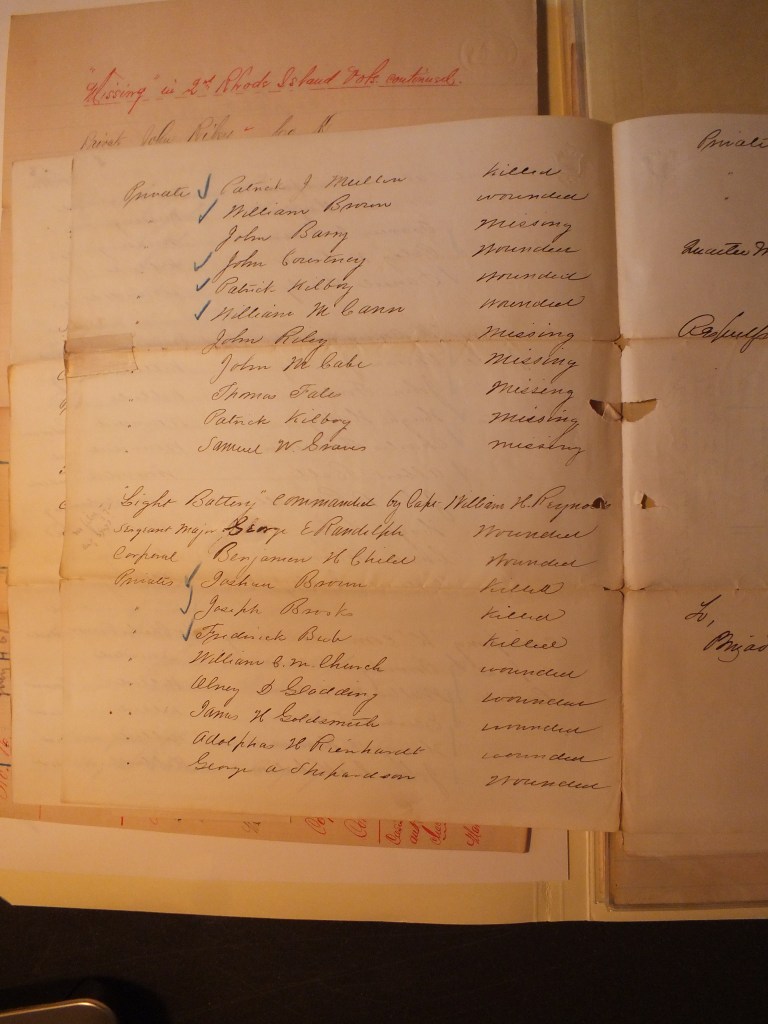 "Missing" in 2d Rhode Island Vols. continued.
Private John Riley " Co.
Private Patrick J Mullen Killed
William Brown wounded
John Barry Missing
John Courtney Wounded
Patrick Kilboy wounded
William M Cann wounded
John Riley Missing
" John McCabe Missing
" Thomas Fales Missing
" Patrick Kilboy Missing
" Samuel W Missing
"Light Battery" Commanded by Capt William H. Reynolds
Sergeant Major George E Randolph Wounded
Corporal Benjamin H Child Wounded
Privates Joshua Brown Killed
" Joseph Killed
" Fredrick Bub Killed
" William C. M. Church wounded
" Olney D Gladding wounded
" James H Goldsmith wounded
" Adolphas H Rienhardt wounded
" George A Shepardson Wounded
Private
"
Quarter M
To,